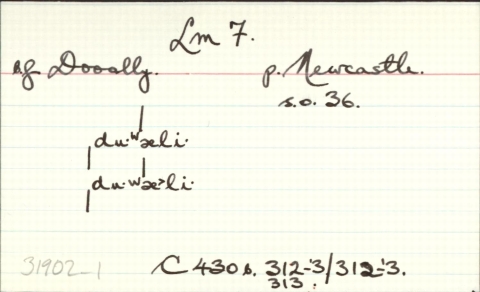 Lm 7.
Dooally. p. Newcastle.
s.o. 36.
du·ʷæli·
du·ʷæ˃li·
31902-1 C 430 s. 312-'3/312-'3.
313.